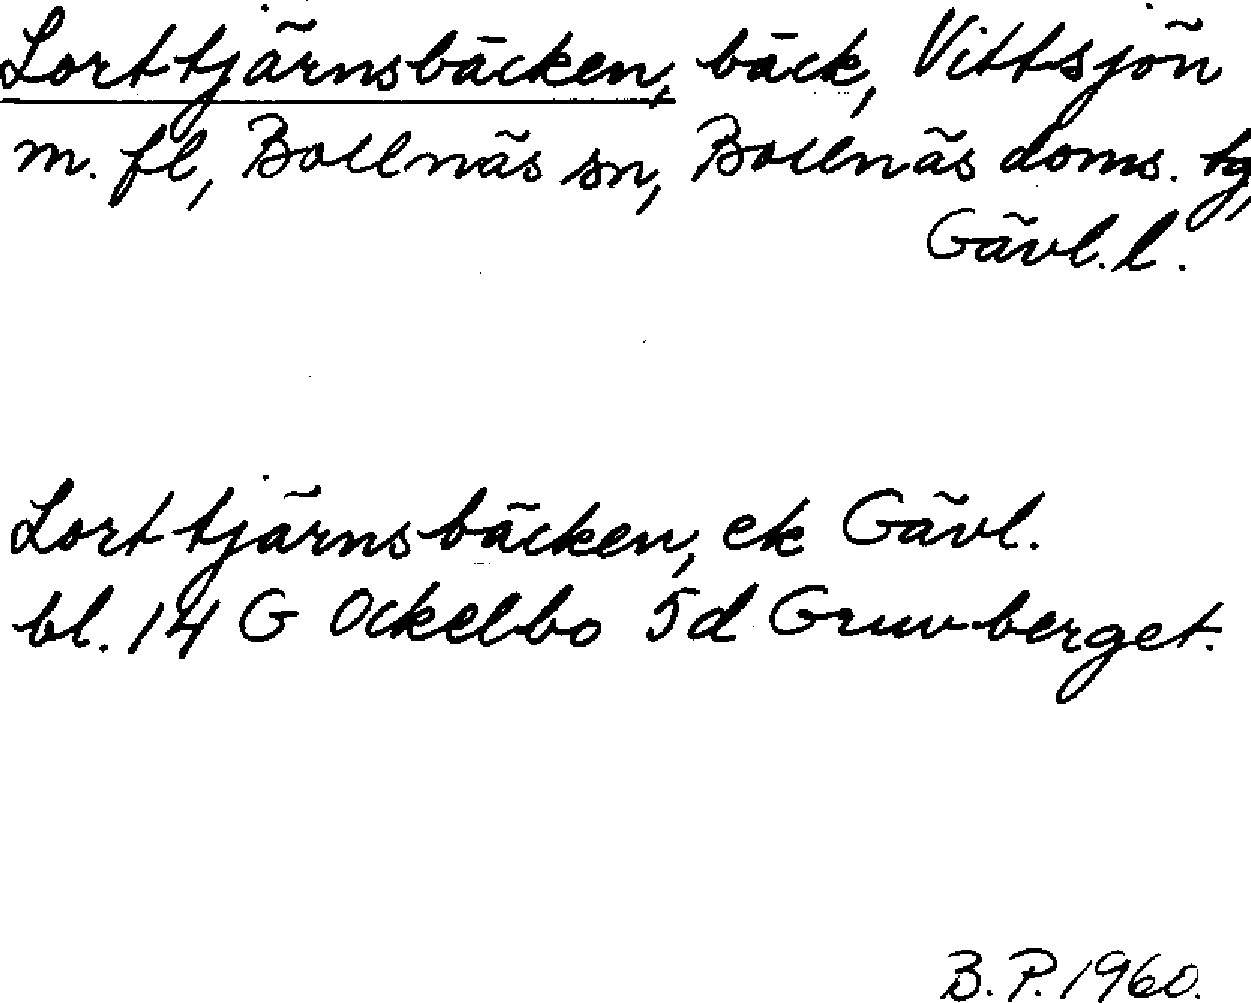 Lorttjärnsbäcken, bäck, Vittsjön
m. fl, Bollnäs sn, Bollnäs doms. tg,
Gävl. l.
Lorttjärnsbäcken, ek Gävl.
bl. 14 G Ockelbo 5d Gruvberget.
B. P. 1960.